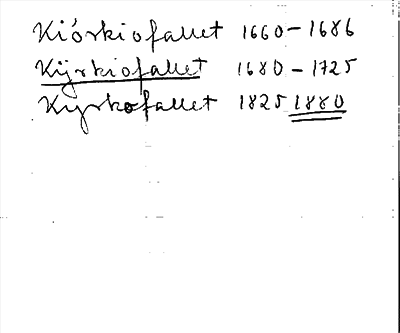 Kiórkiofallet 1660-1686
Kijrkiofallet 1680-1725
Kyrkofallet 1825 1880